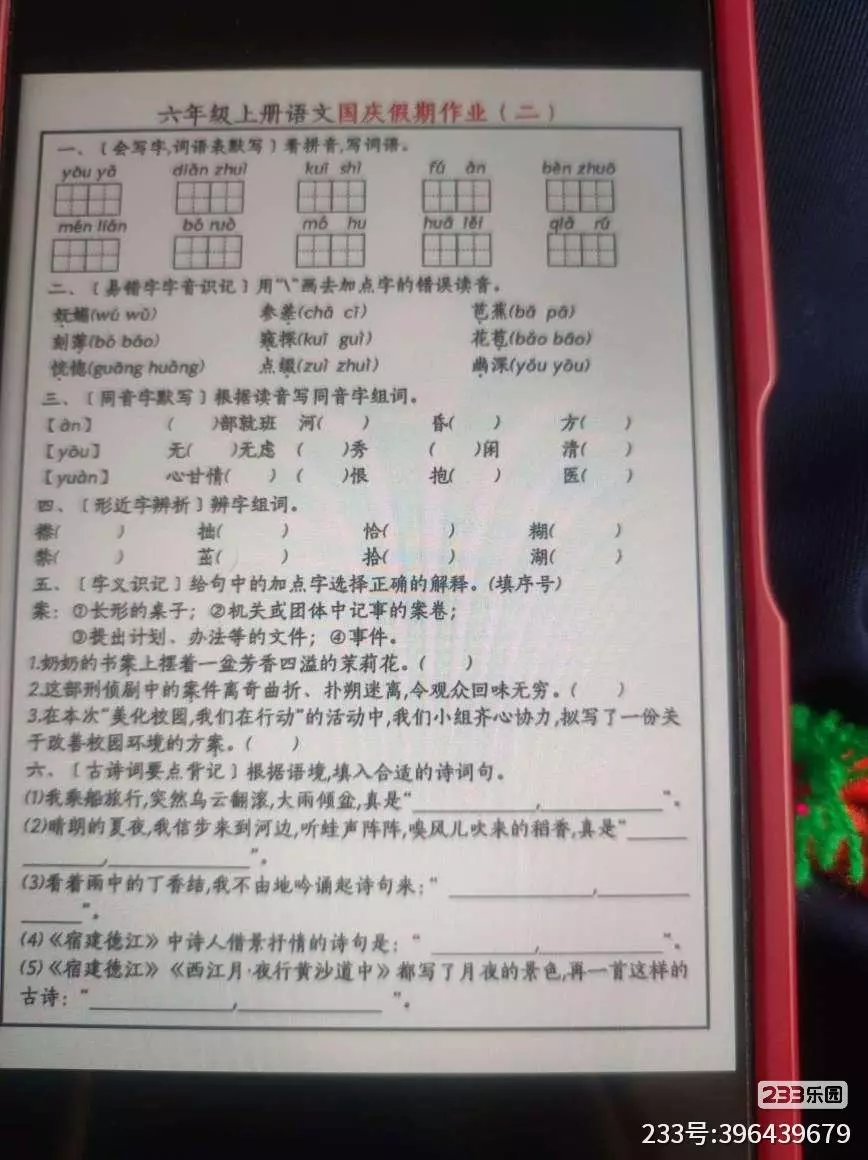 六年级上册语文国庆假期作业(二)
一、〔会写字,词语表默写〕看拼音,写词语。
yōu yǎ diǎn zhuì kuī shì fú àn bèn zhuō
mén lián bó ruò mó hu huā lěi qià rú
二、〔易错字字音识记〕用“\”画去加点字的错误读音。
妩媚(wú wǔ) 参差(chā cī) 芭蕉(bā pā)
刻薄(bó báo) 窥探(kuī guì) 花苞(bǎo bāo)
恍惚(guāng huǎng) 点缀(zuì zhuì) 幽深(yǒu yōu)
三、〔同音字默写〕根据读音写同音字组词。
【àn】 ( )部就班 河( ) 昏( ) 方( )
【yōu】 无( )无虑 ( )秀 ( )闲 清( )
【yuàn】 心甘情( ) ( )恨 抱( ) 医( )
四、〔形近字辨析〕辨字组词。
襟( ) 拙( ) 恰( ) 糊( )
禁( ) 茁( ) 拾( ) 湖( )
五、〔字义识记〕给句中的加点字选择正确的解释。(填序号)
案:①长形的桌子;②机关或团体中记事的案卷;
③提出计划、办法等的文件;④事件。
1.奶奶的书案上摆着一盆芳香四溢的茉莉花。( )
2.这部刑侦剧中的案件离奇曲折、扑朔迷离,令观众回味无穷。( )
3.在本次“美化校园,我们在行动”的活动中,我们小组齐心协力,拟写了一份关
于改善校园环境的方案。( )
六、〔古诗词要点背记〕根据语境,填入合适的诗词句。
(1)我乘船旅行,突然乌云翻滚,大雨倾盆,真是“__________,__________”。
(2)晴朗的夏夜,我信步来到河边,听蛙声阵阵,嗅风儿吹来的稻香,真是“_____
_______,____________”。
(3)看着雨中的丁香结,我不由地吟诵起诗句来:“____________,________
_____”。
(4)《宿建德江》中诗人借景抒情的诗句是:“__________,__________”。
(5)《宿建德江》《西江月·夜行黄沙道中》都写了月夜的景色,再一首这样的
古诗:“____________,____________”。
233乐园
233号:396439679